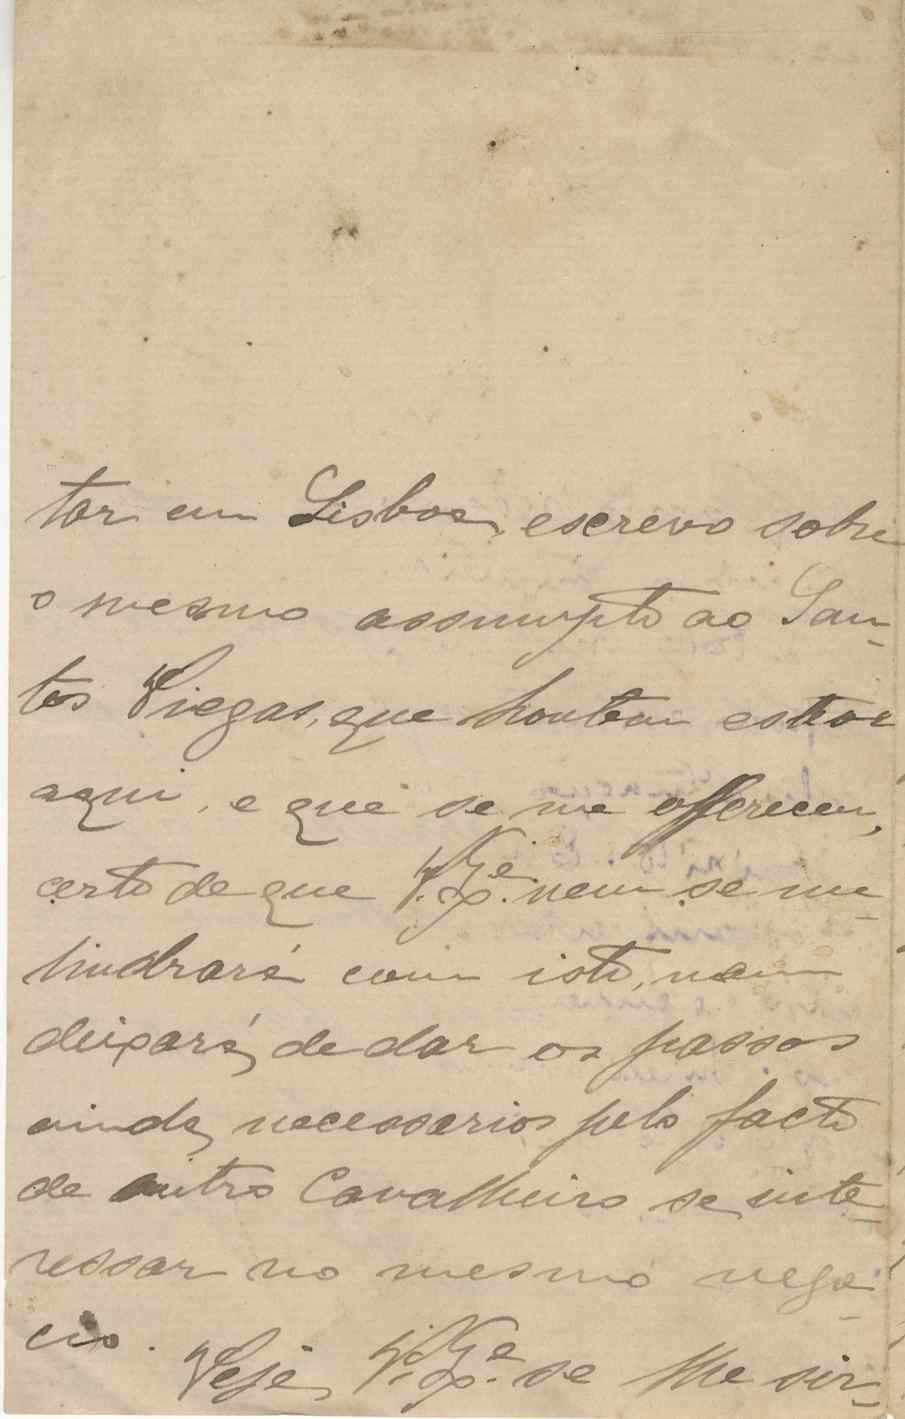 tar em Lisboa, escrevo sobre
o mesmo assumpto ao San-
tos Viegas, que hontem esteve
aqui, e que se me offereceu,
certo de que V. Ex.ª nem se me-
lindrará com isto, nem
deixará de dar os passos
ainda necessarios pelo facto
de outro Cavalheiro se inte-
ressar no mesmo nego-
cio.
Veja V. Ex.ª se lhe sir-